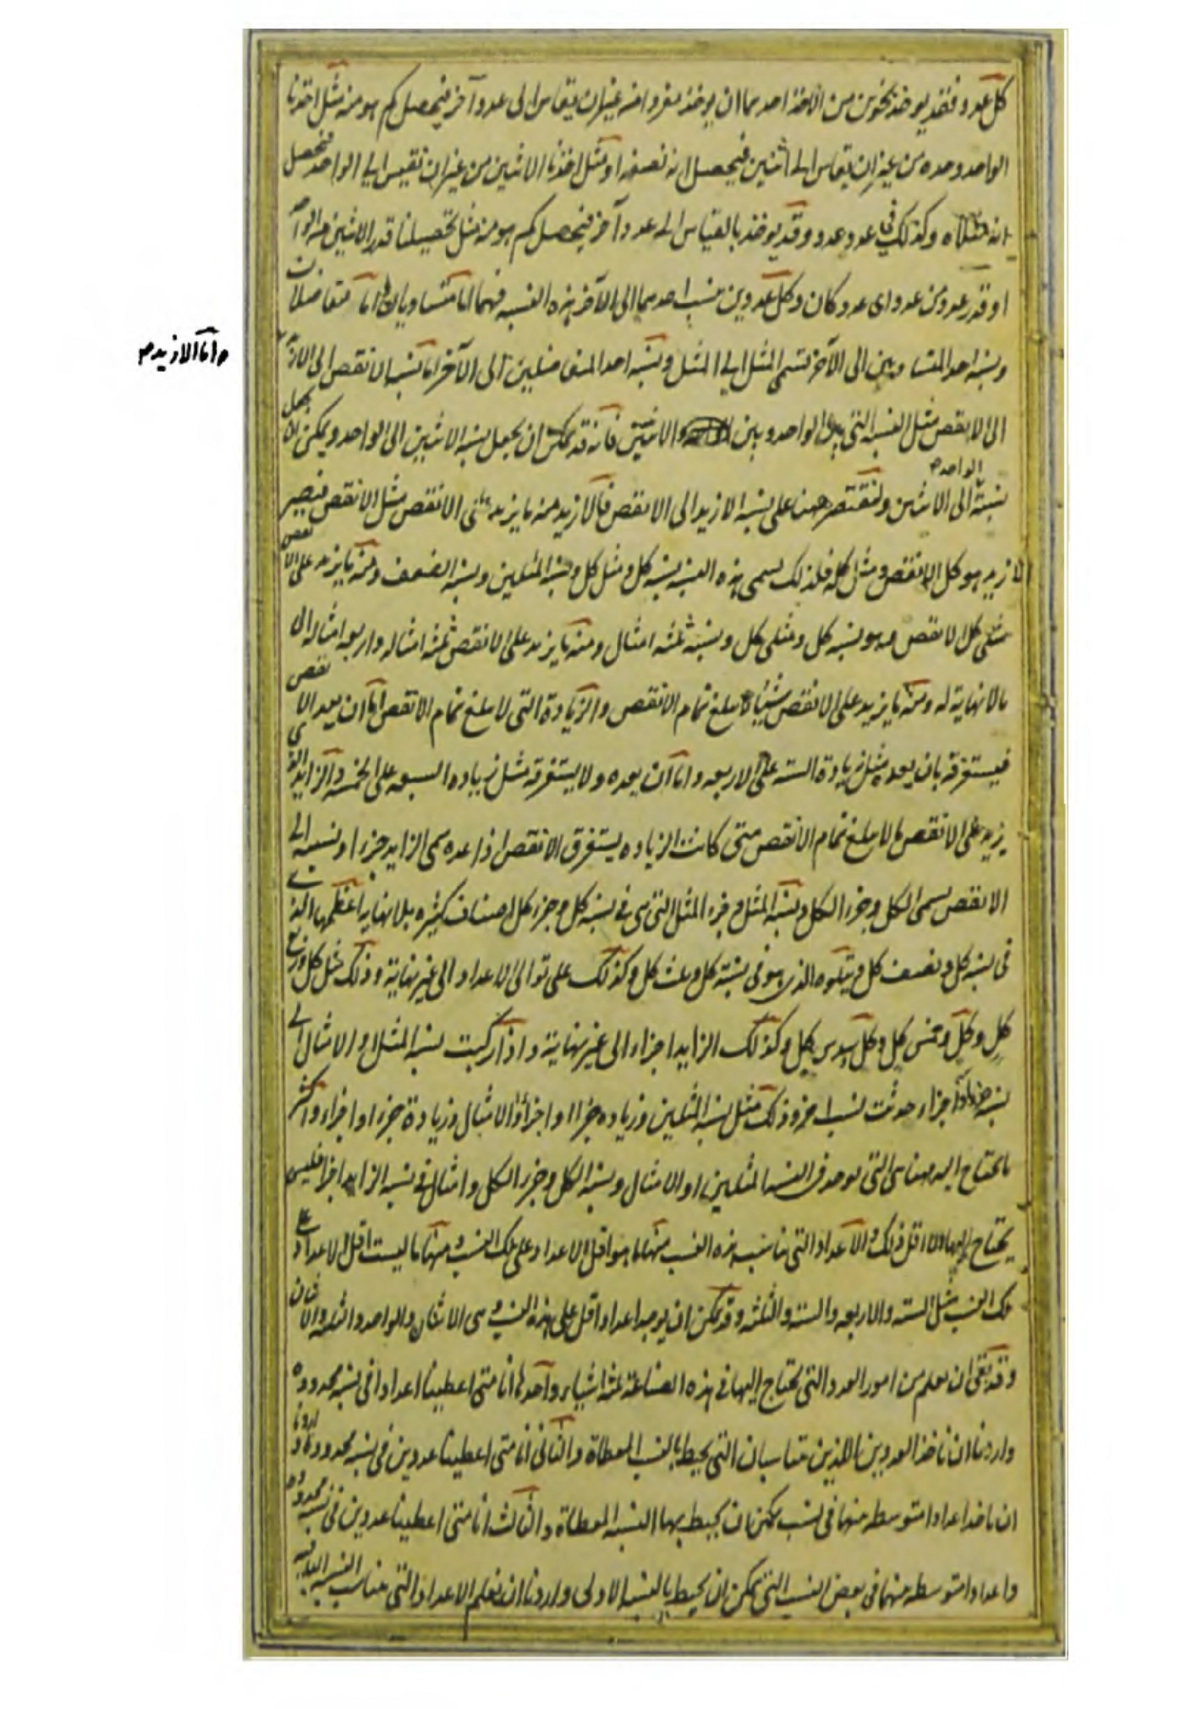 كل عدد فقد يوخذ بنحوين من الاخذ احدهما ان يوخذ مفردا من غير ان يقاس الى عدد آخر فيحصل كم هو منه مثل اخذنا
الواحد وحده من غير ان يقاس الى اثنين فيحصل انه نصفه او مثل اخذنا الاثنين من غير ان نقيس الى الواحد فيحصل
انه مثلاه وكذلك في عدد عدد وقد يوخذ بالقياس الى عدد آخر فيحصل كم هو منه مثل تحصيلنا قدر الاثنين من الواحد
او قدر عدد من عدد اى عدد كان وكل عددين ينسب احدهما الى الآخر هذه النسبة فهما اما متساويان واما متفاضلان
ونسبة احد المتساويين الى الآخر تسمى المثل الى المثل ونسبة احد المتفاضلين الى الآخر اما نسبة الانقص الى الازيد
واما الازيد
الى الانقص مثل النسبة التى بين الواحد وبين والاثنين فانه قد يمكن ان يجعل نسبة الاثنين الى الواحد ويمكن ان يجعل
نسبة الواحد الى الاثنين ولنقتصر ههنا على نسبة الازيد الى الانقص فالازيد منه ما يزيد على الانقص مثل الانقص فيصير
الازيد هو كل الانقص ومثل كله فلذلك يسمى هذه النسبة نسبة كل ومثل كل ونسبة المثلين ونسبة الضعف ومنه ما يزيد على الانقص
مثلى كل الانقص وهو نسبة كل ومثلى كل ونسبة ثلثة امثال ومنه ما يزيد على الانقص ثلثة امثاله واربعة امثاله الى
ما لا نهاية له ومنه ما يزيد على الانقص شيئا لا يبلغ تمام الانقص والزيادة التى لا يبلغ تمام الانقص اما ان يعد الانقص
فيستغرقه بان يعده مثل زيادة الستة على الاربعه واما ان يعده ولا يستغرقه مثل زياده السبعه على الخمسة والزايد الذى
يزيد على الانقص ما لا يبلغ تمام الانقص متى كانت الزياده يستغرق الانقص اذا عده سمى الزايد جزءا ونسبته الى
الانقص يسمى الكل وجزء الكل ونسبة المثل وجزء المثل التى هى فى نسبة كل وجزء كل اصناف كثيره بلا نهاية اعظمها الذى
فى نسبة كل ونصف كل ويتلوه الذى هو فى نسبة كل وثلث كل وكذلك على توالى الاعداد الى غير نهاية وذلك مثل كل وربع
كل وكل وخمس كل وكل وسدس كل وكذلك الزايد اجزاء الى غير نهاية واذا ركبت نسبة المثل والامثال الى
نسبة جزء او اجزاء حدثت نسب اخر وذلك مثل نسبة المثلين وزياده جزء او اجزاء والامثال وزيادة جزء او اجزاء واكثر
ما يحتاج اليه ههنا هى التى توجد فى النسبة المثلين او الامثال ونسبة الكل وجزء الكل وامثال فى نسبة الزايد اجزاء فليس
يحتاج اليها الا اقل ذلك والاعداد التى تناسبه هذه النسب منها ما هو اقل الاعداد على تلك النسب ومنها ما ليست اقل الاعداد على
تلك النسب مثل الستة والاربعه والستة والثلثة وقد يمكن ان يوجد اعداد اقل على هذه النسب وهى الاثنان والواحد والثلثة والاثنان
وقد بقى ان نعلم من امور العدد التى يحتاج اليها فى هذه الصناعة ثلثة اشياء واحدها انا متى اعطينا اعدادا فى نسبة محدوده
واردنا ان ناخذ العددين اللذين يتناسبان التى يحيط بالنسب المعطاة والثانى انا متى اعطينا عددين فى نسبة محدودة واردنا
ان ناخذ اعدادا متوسطه منها فى نسب يمكن ان يحيط بها النسبة المعطاة والثالث انا متى اعطينا عددين فى نسبة محدوده
واعدادا متوسطه منها فى بعض النسب التى يمكن ان يحيط بالنسبة الاولى واردنا ان نعلم الاعداد التى يتناسب النسبة